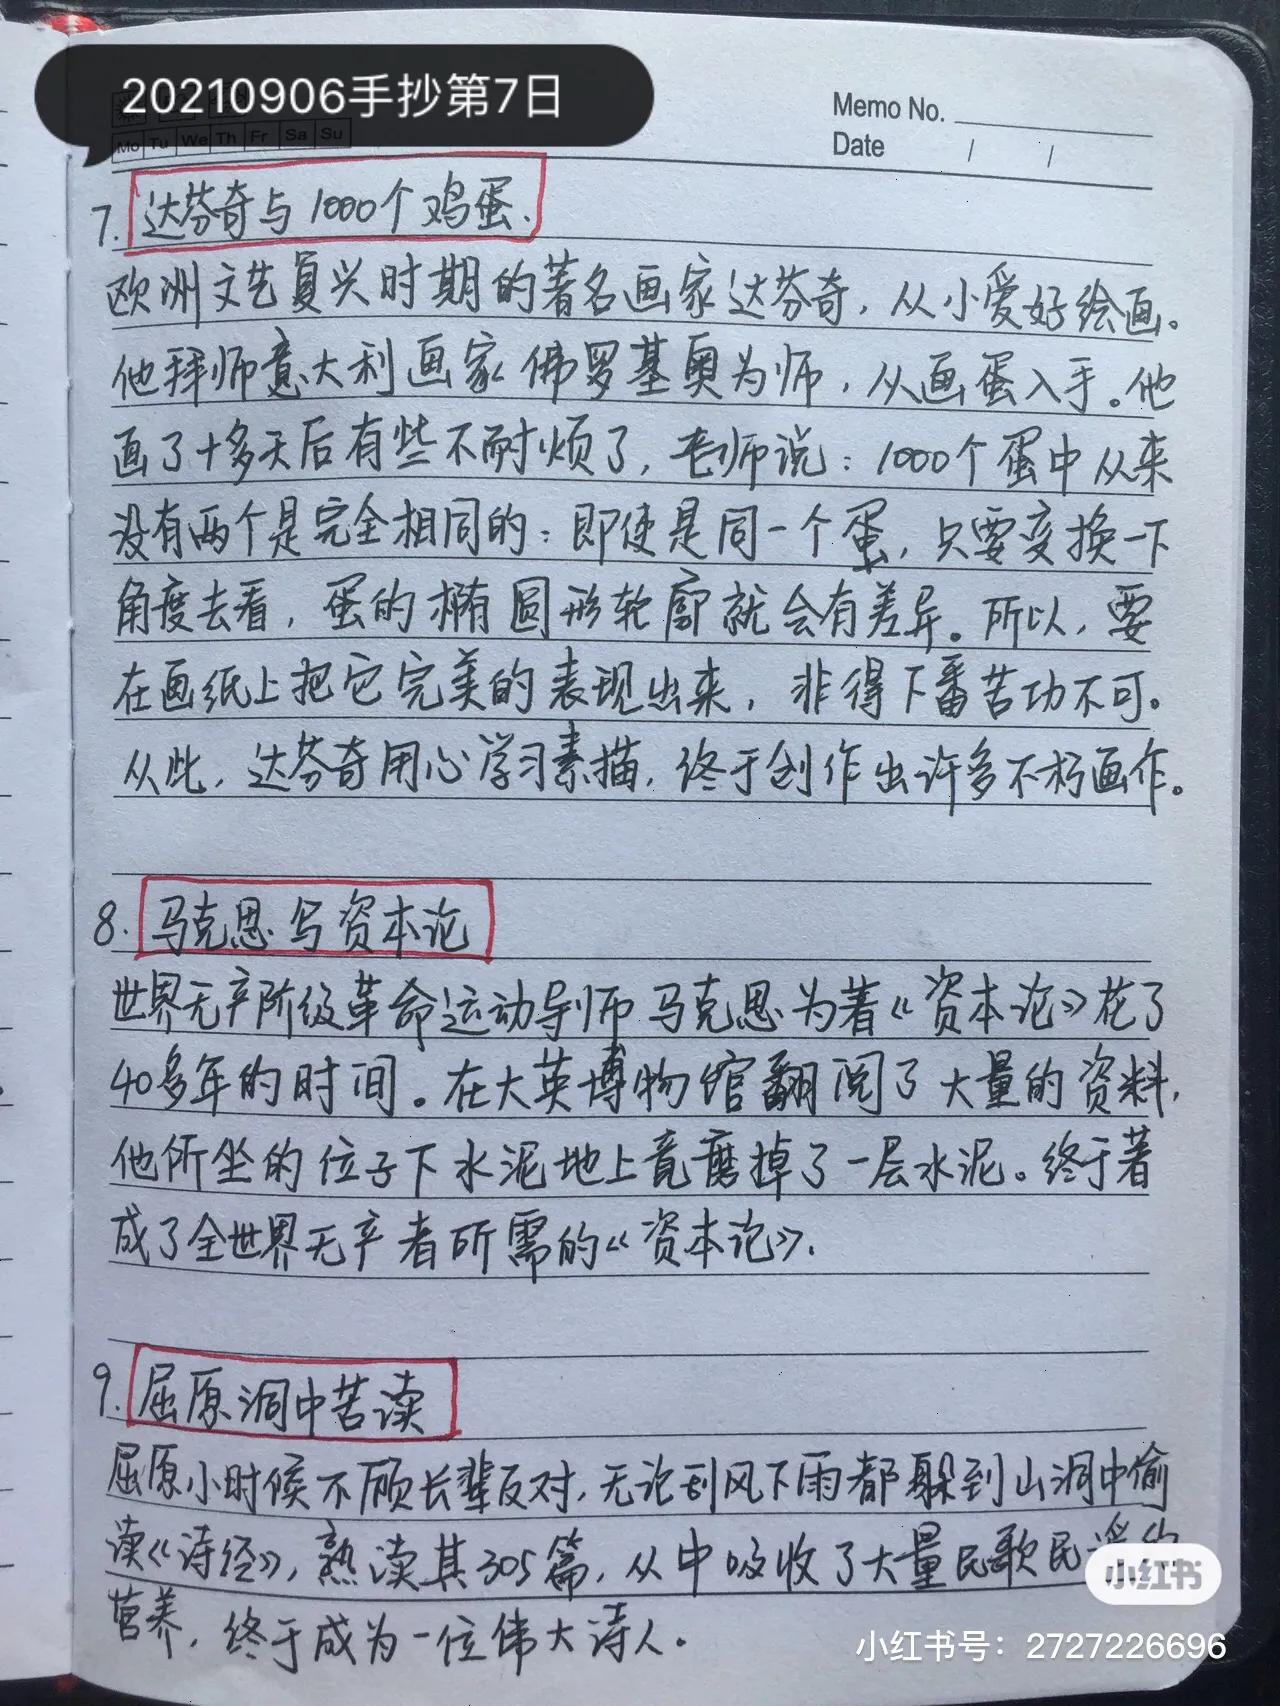 20210906手抄第7日
Memo No.
Mo Tu We Th Fr Sa Su
Date / /
7. 达芬奇与1000个鸡蛋.
欧洲文艺复兴时期的著名画家达芬奇，从小爱好绘画。
他拜师意大利画家佛罗基奥为师，从画蛋入手。他
画了十多天后有些不耐烦了，老师说：1000个蛋中从来
没有两个是完全相同的：即使是同一个蛋，只要变换一下
角度去看，蛋的椭圆形轮廓就会有差异。所以，要
在画纸上把它完美的表现出来，非得下番苦功不可。
从此，达芬奇用心学习素描，终于创作出许多不朽画作。
8. 马克思写资本论
世界无产阶级革命运动导师马克思为著《资本论》花了
40多年的时间。在大英博物馆翻阅了大量的资料，
他所坐的位子下水泥地上竟磨掉了一层水泥。终于著
成了全世界无产者所需的《资本论》.
9. 屈原洞中苦读
屈原小时候不顾长辈反对，无论刮风下雨都躲到山洞中偷
读《诗经》，熟读其305篇，从中吸收了大量民歌民谣的
营养，终于成为一位伟大诗人。
小红书
小红书号：2727226696